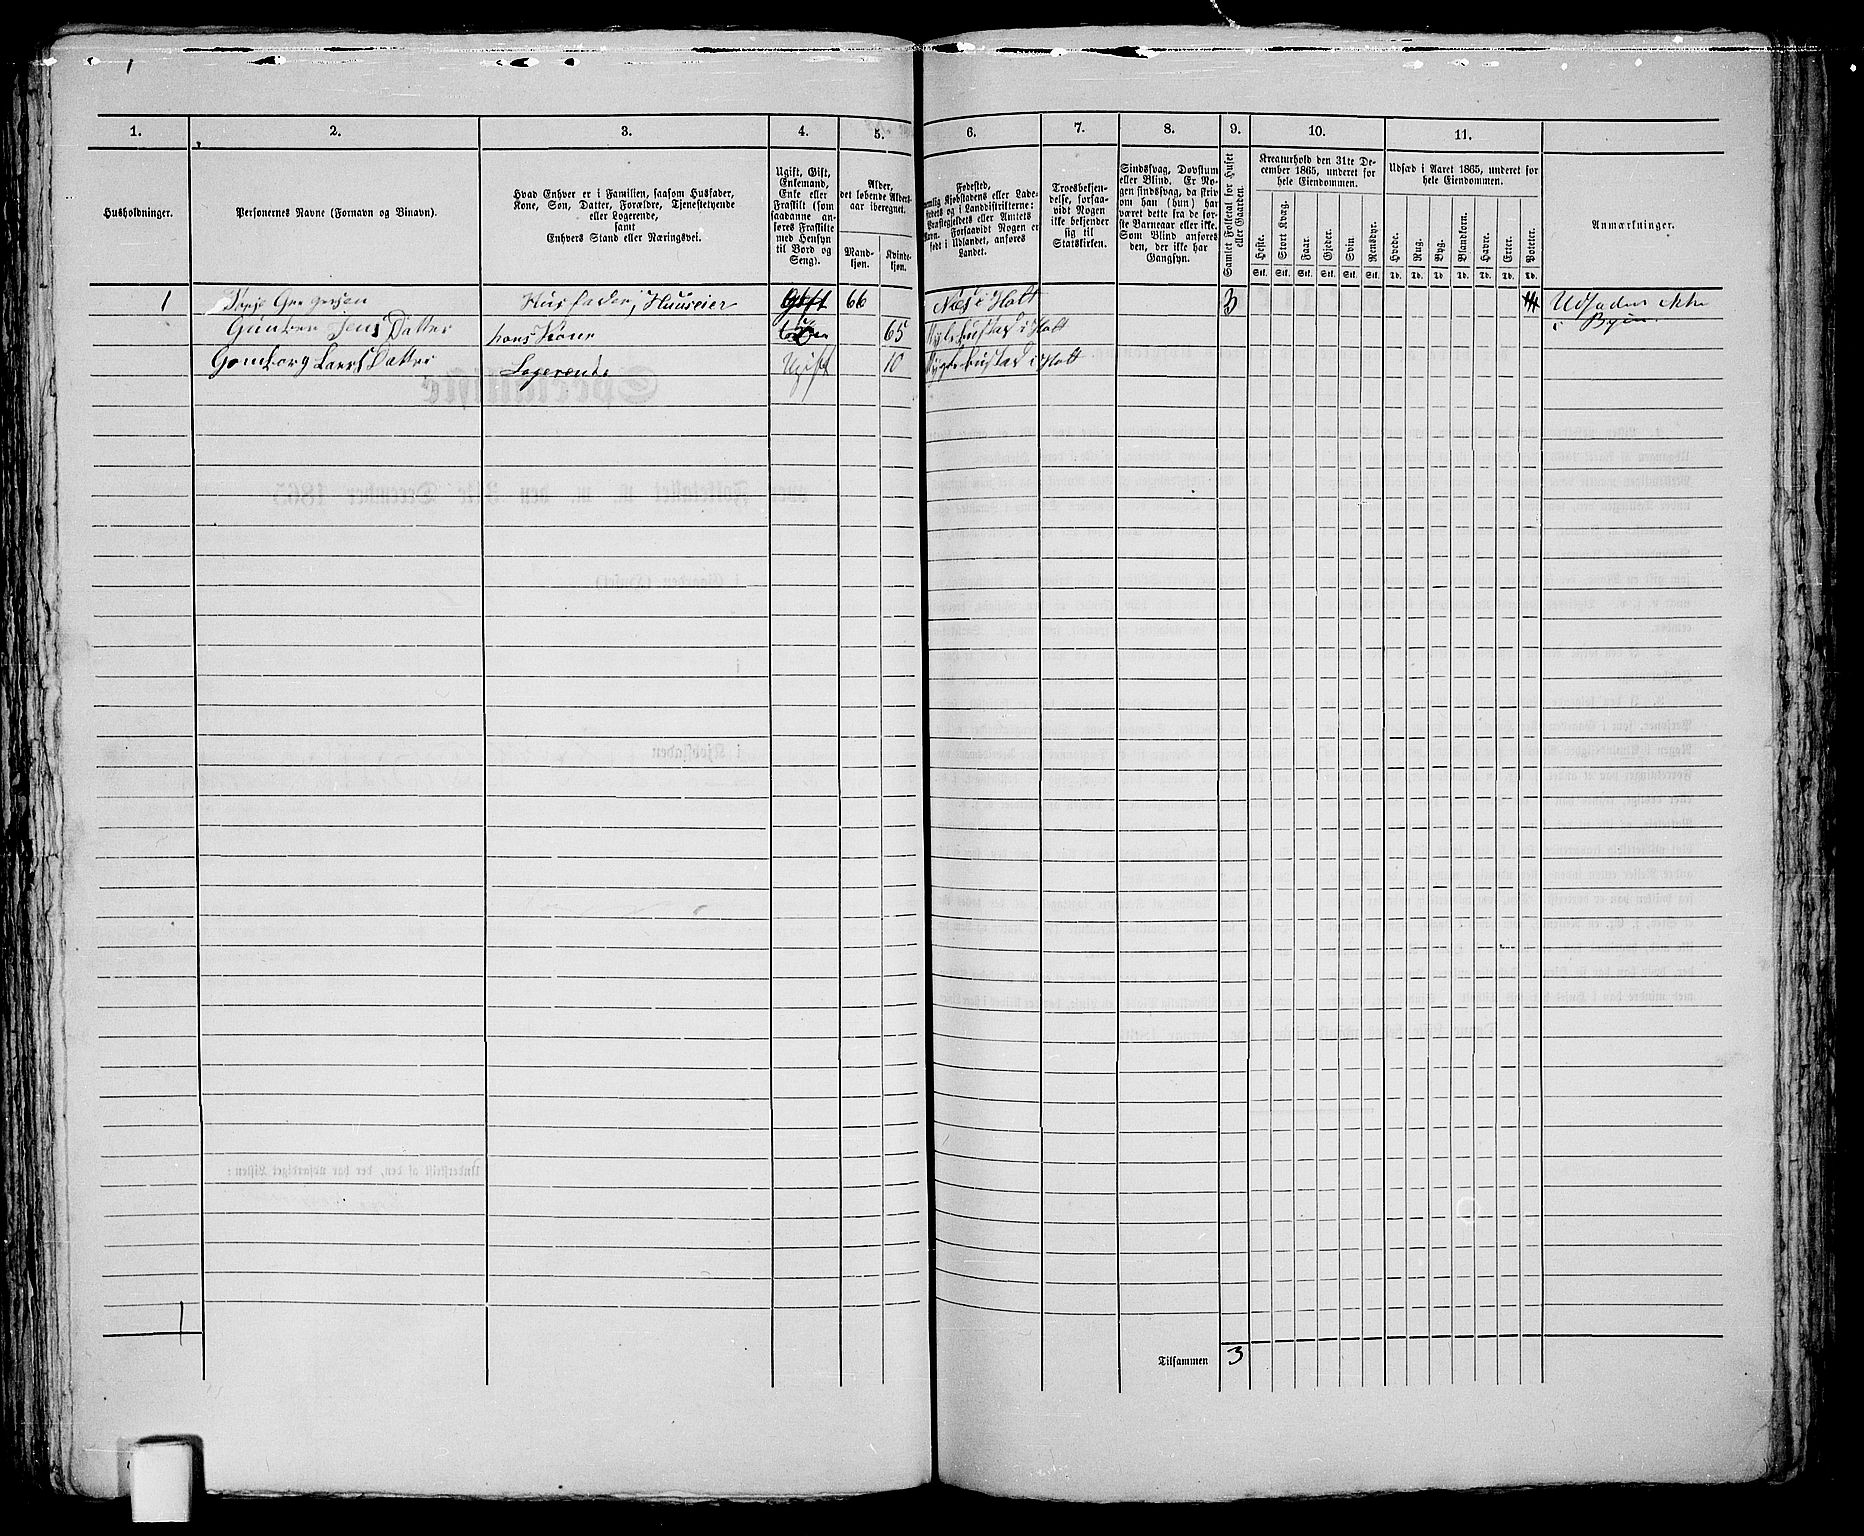 1. 2. 3. 4. 5. 6. 7. 8. 9. 10. 11.
Husholdninger.
Personernes Navne (Fornavn og Binavn).
Hvad Enhver er i Familien, saasom Husfader,
Kone, Søn, Datter, Forældre, Tjenestetyende
eller Logerende,
samt
Enhvers Stand eller Næringsvei.
Ugift, Gift,
Enkemand,
Enke eller
Fraskilt (som
saadanne an-
føres Fraskilte
med Hensyn
til Bord og
Seng).
Alder,
det løbende Alders-
aar iberegnet.
Mand-
kjøn.
Kvinde-
kjøn.
Fødested,
nemlig Kjøbstadens eller Lade-
stedets og i Landdistrikterne:
Præstegjeldets eller Amtets
Navn. Forsaavidt Nogen er
født i Udlandet, anføres
Landet.
Troesbekjen-
delse, forsaa-
vidt Nogen
ikke bekjender
sig til
Statskirken.
Sindssvag, Døvstum
eller Blind. Er No-
gen sindssvag, da skriv
om han (hun) har
været dette fra de før-
ste Barneaar eller ikke.
Som Blind anføres
den, der ikke har
Gangsyn.
Samlet Folketal for Huset
eller Gaarden.
Kreaturhold den 31te De-
cember 1865, underet for
hele Eiendommen.
Heste. Stort Kvæg. Faar. Gjeder. Svin. Rensdyr.
Stk. Stk. Stk. Stk. Stk. Stk.
Udsæd i Aaret 1865, underet for
hele Eiendommen.
Hvede. Rug. Byg. Blandkorn. Havre. Erter. Poteter.
Td. Td. Td. Td. Td. Td. Td.
Anmærkninger.
1 Husfader, Huuseier Gift 66 Næs i Holt 3 Udfader ikke
Jens Datter hans Kone 65 i Holt i Byen
Lars Datter Logerende Ugift 10 i Holt
1
Tilsammen 3